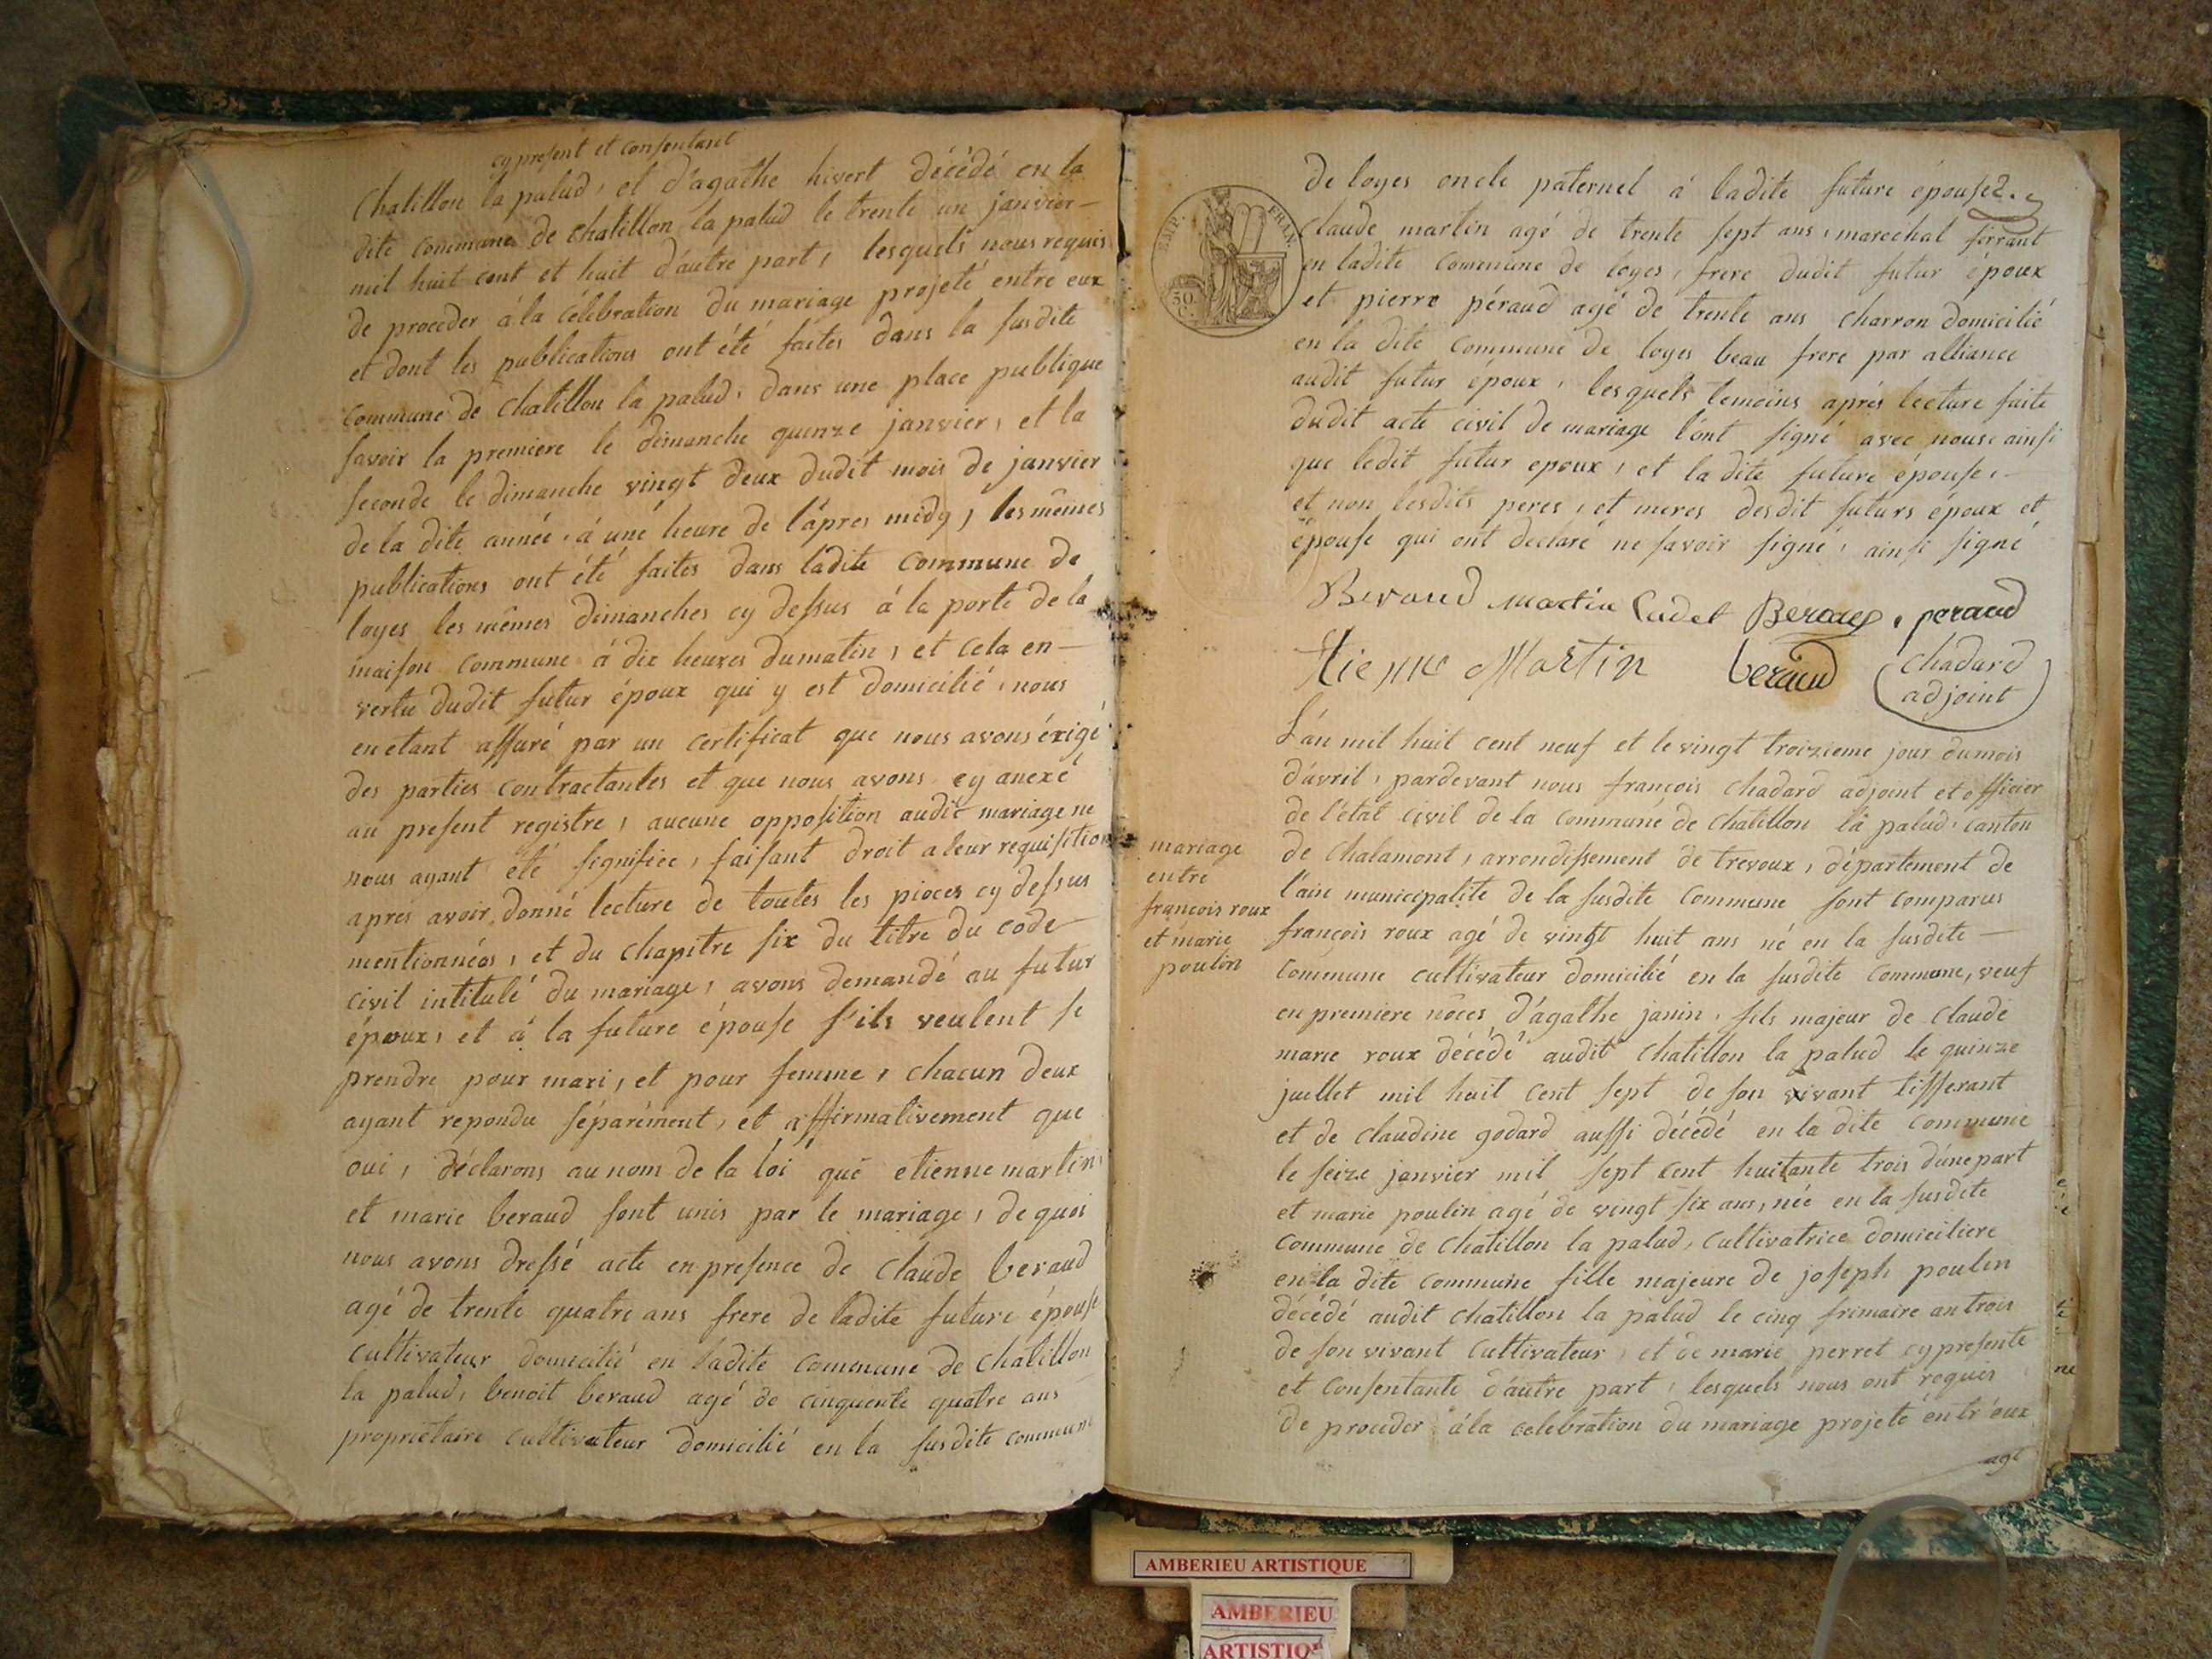 cy present et consentant
Chatillon la palud, et d'agathe hivert décédé en la
dite commune de chatillon la palud le trente un janvier
mil huit cent et huit d'autre part, lesquels nous requis
de proceder à la célébration du mariage projeté entre eux
et dont les publications ont été faites dans la susdite
commune de chatillon la palud, dans une place publique
savoir la premiere le dimanche quinze janvier, et la
seconde le dimanche vingt deux dudit mois de janvier
de la dite année, à une heure de l'apres midy, les mêmes
publications ont été faites dans ladite commune de
loyes les mêmes dimanches cy dessus à la porte de la
maison commune à dix heures du matin, et cela en
vertu dudit futur époux qui y est domicilié, nous
en etant assuré par un certificat que nous avons éxigé
des parties contractantes et que nous avons cy anexé
au present registre, aucune opposition audit mariage ne
nous ayant été signifiée, faisant droit a leur requisition
apres avoir donné lecture de toutes les pieces cy dessus
mentionnées, et du chapitre six du titre du code
civil intitulé du mariage, avons demandé au futur
époux, et à la future épouse s'ils veulent se
prendre pour mari, et pour femme, chacun deux
ayant repondu séparément, et affirmativement que
oui, déclarons au nom de la loi que etienne martin,
et marie beraud sont unis par le mariage, de quoi
nous avons dressé acte en presence de claude beraud
agé de trente quatre ans frere de ladite future épouse
cultivateur domicilié en ladite commune de chatillon
la palud, benoit beraud agé de cinquente quatre ans
propriétaire cultivateur domicilié en la susdite commune
EMP. FRAN.
50 C.
de loyes oncle paternel à ladite future épouse
claude martin agé de trente sept ans, marechal ferrant
en ladite commune de loyes, frere dudit futur époux
et pierre péraud agé de trente ans charron domicilié
en la dite commune de loyes beau frere par alliance
audit futur époux, lesquels temoins aprés lecture faite
dudit acte civil de mariage l'ont signé avec nous ainsi
que ledit futur epoux, et la dite future épouse,
et non lesdits peres, et meres desdit futurs époux et
épouse qui ont declaré ne savoir signé, ainsi signé
Beraud martin Cadet peraud
Etienne Martin beraud chadard
adjoint
L'an mil huit cent neuf et le vingt troizieme jour du mois
d'avril, pardevant nous françois chadard adjoint et officier
de l'état civil de la commune de chatillon la palud, canton
de chalamont, arrondissement de trevoux, département de
l'ain municipalité de la susdite commune sont comparus
mariage
entre
françois roux
et marie
poulin
françois roux agé de vingt huit ans né en la susdite
commune cultivateur domicilié en la susdite commune, veuf
en premiere nôces d'agathe janin, fils majeur de claude
marie roux décédé audit chatillon la palud le quinze
juillet mil huit cent sept de son vivant tisserant
et de claudine godard aussi décédé en la dite commune
le seize janvier mil sept cent huitante trois d'une part
et marie poulin agé de vingt six ans, née en la susdite
commune de chatillon la palud, cultivatrice domiciliere
en la dite commune fille majeure de joseph poulin
décédé audit chatillon la palud le cinq frimaire an trois
de son vivant cultivateur, et de marie perret cy presente
et consentante d'autre part, lesquels nous ont requis
de proceder à la celebration du mariage projeté entr'eux
AMBERIEU ARTISTIQUE
AMBERIEU